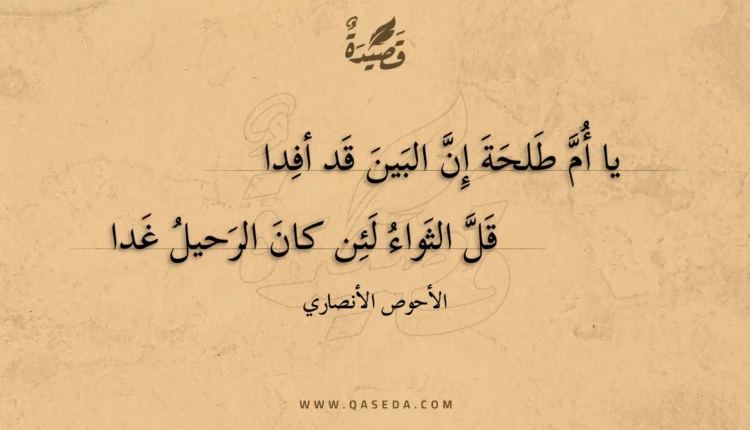 قَصِيْدَةٌ
يا أُمَّ طَلحَةَ إِنَّ البَينَ قَد أفِدا
قَلَّ الثَواءُ لَئِن كانَ الرَحيلُ غَدا
الأحوص الأنصاري
WWW.QASEDA.COM